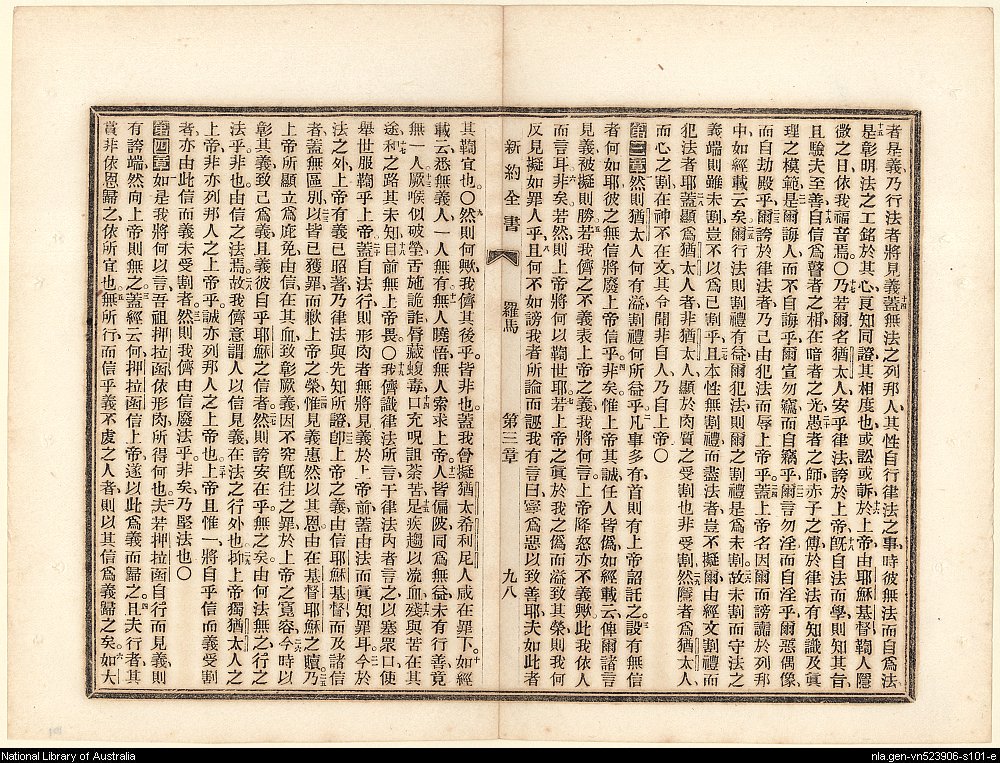 者是義乃行法者將見義蓋無法之列邦人其性自行律法之事時彼無法而自爲法
是彰明法之工銘於其心良知同證其相度也或訟或訴於上帝由耶穌基督鞫人隱
微之日依我福音焉○乃若爾名猶太人安乎律法誇於上帝旣自法而學則知其旨
且驗夫至善自信爲瞽者之相在暗者之光愚者之師赤子之傅於律法有知識及眞
理之模範是爾誨人而不自誨乎爾宣勿竊而自竊乎爾言勿淫而自淫乎爾惡偶像
而自劫殿乎爾誇於律法者乃己由犯法而辱上帝乎蓋上帝名因爾而謗讟於列邦
中如經載云矣爾行法則割禮有益爾犯法則爾之割禮是爲未割故未割而守法之
義端則雖未割豈不以爲已割乎且本性無割禮而盡法者豈不擬爾由經文割禮而
犯法者耶蓋顯爲猶太人者非猶太人顯於肉質之受割也非受割然隱者爲猶太人
而心之割在神不在文其令聞非自人乃自上帝○
第三章然則猶太人何有溢割禮何所益乎凡事多有首則有上帝詔託之設有無信
者何如耶彼之無信將廢上帝信乎非矣惟上帝其誠任人皆僞如經載云俾爾諸言
見義被擬則勝若我儕之不義表上帝之義我將何言上帝降怒亦不義歟此我依人
而言耳非矣若然則上帝將何以鞫世耶若上帝之眞於我之僞而溢致其榮則我何
反見擬如罪人乎且何不如謗我者所論而誣我有言曰寧爲惡以致善耶夫如此者
新約全書 羅馬 第三章 九八
其鞫宜也○然則何歟我儕其後乎皆非也蓋我曾擬猶太希利尼人咸在罪下如經
載云悉無義人一人無有無人曉悟無人索求上帝人皆偏陂同爲無益未有行善竟
無一人厥喉似破塋舌施詭詐脣藏蝮毒口充呪詛荼苦足疾趨以流血殘與苦在其
途和之路其未知目前無上帝畏○我儕識律法所言于律法內者言之以塞眾口使
舉世服鞫乎上帝蓋自法行則形肉者無將見義於上帝前蓋由法而眞知罪耳今於
法之外上帝有義已昭著乃律法與先知所證卽上帝之義由信耶穌基督而及諸信
者蓋無區別以皆已獲罪而歉上帝之榮惟見義惠然以其恩由在基督耶穌之贖乃
上帝所顯立爲庇免由信在其血致彰厥義因不究旣往之罪於上帝之寬容今時以
彰其義致己爲義且義彼自乎耶穌之信者然則誇安在乎無之矣由何法無之行之
法乎非也由信之法焉故我儕意謂人以信見義在法之行外也抑上帝獨猶太人之
上帝非亦列邦人之上帝乎誠亦列邦人之上帝也上帝且惟一將自乎信而義受割
者亦由此信而義未受割者然則我儕由信廢法乎非矣乃堅法也○
第四章如是我將何以言吾祖押拉函依形肉所得何也夫若押拉函自行而見義則
有誇端然向上帝則無之蓋經云何押拉函信上帝遂以此爲義而歸之且夫行者其
賞非依恩歸之依所宜也無所行而信乎義不虔之人者則以其信爲義歸之矣如大
National Library of Australia
nla.gen-vn523906-s101-e